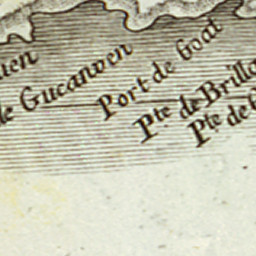 de Gucanven
Port de Goat
Pte de Brill
Pte de